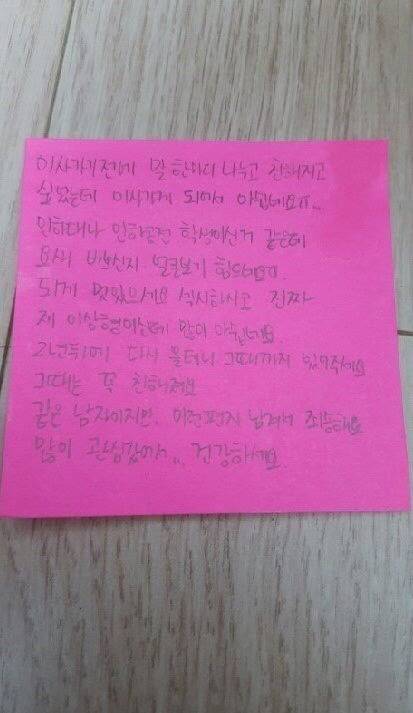 이사가기전에 말 한마디 나누고 친해지고
싶었는데 이사가게 되어서 아쉽네요ㅠ...
인하대나 인하공전 학생이신거 같은데
요새 바쁘신지 얼굴보기 힘드네요.
되게 멋있으세요 섹시하시고 진짜
제 이상형이신데 많이 아쉽네요.
2년뒤에 다시 올테니 그때까지 있어주세요
그때는 꼭 친해져요
같은 남자이지만, 이런편지 남겨서 죄송해요
많이 관심갔어서... 건강하세요